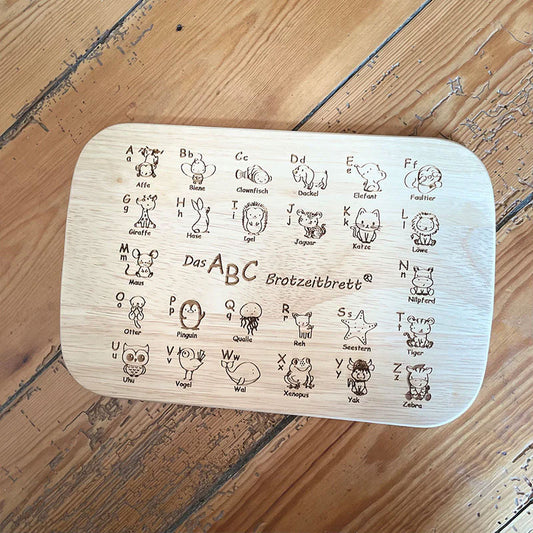 A a Affe
Bb Biene
Cc Clownfisch
Dd Dackel
E e Elefant
Ff Faultier
G g Giraffe
H h Hase
I i Igel
J j Jaguar
K k Katze
L l Löwe
M m Maus
Das ABC Brotzeitbrett
N n Nilpferd
O o Otter
P p Pinguin
Q q Qualle
R r Reh
S s Seestern
T t Tiger
U u Uhu
V v Vogel
W w Wal
X x Xenopus
Y y Yak
Z z Zebra